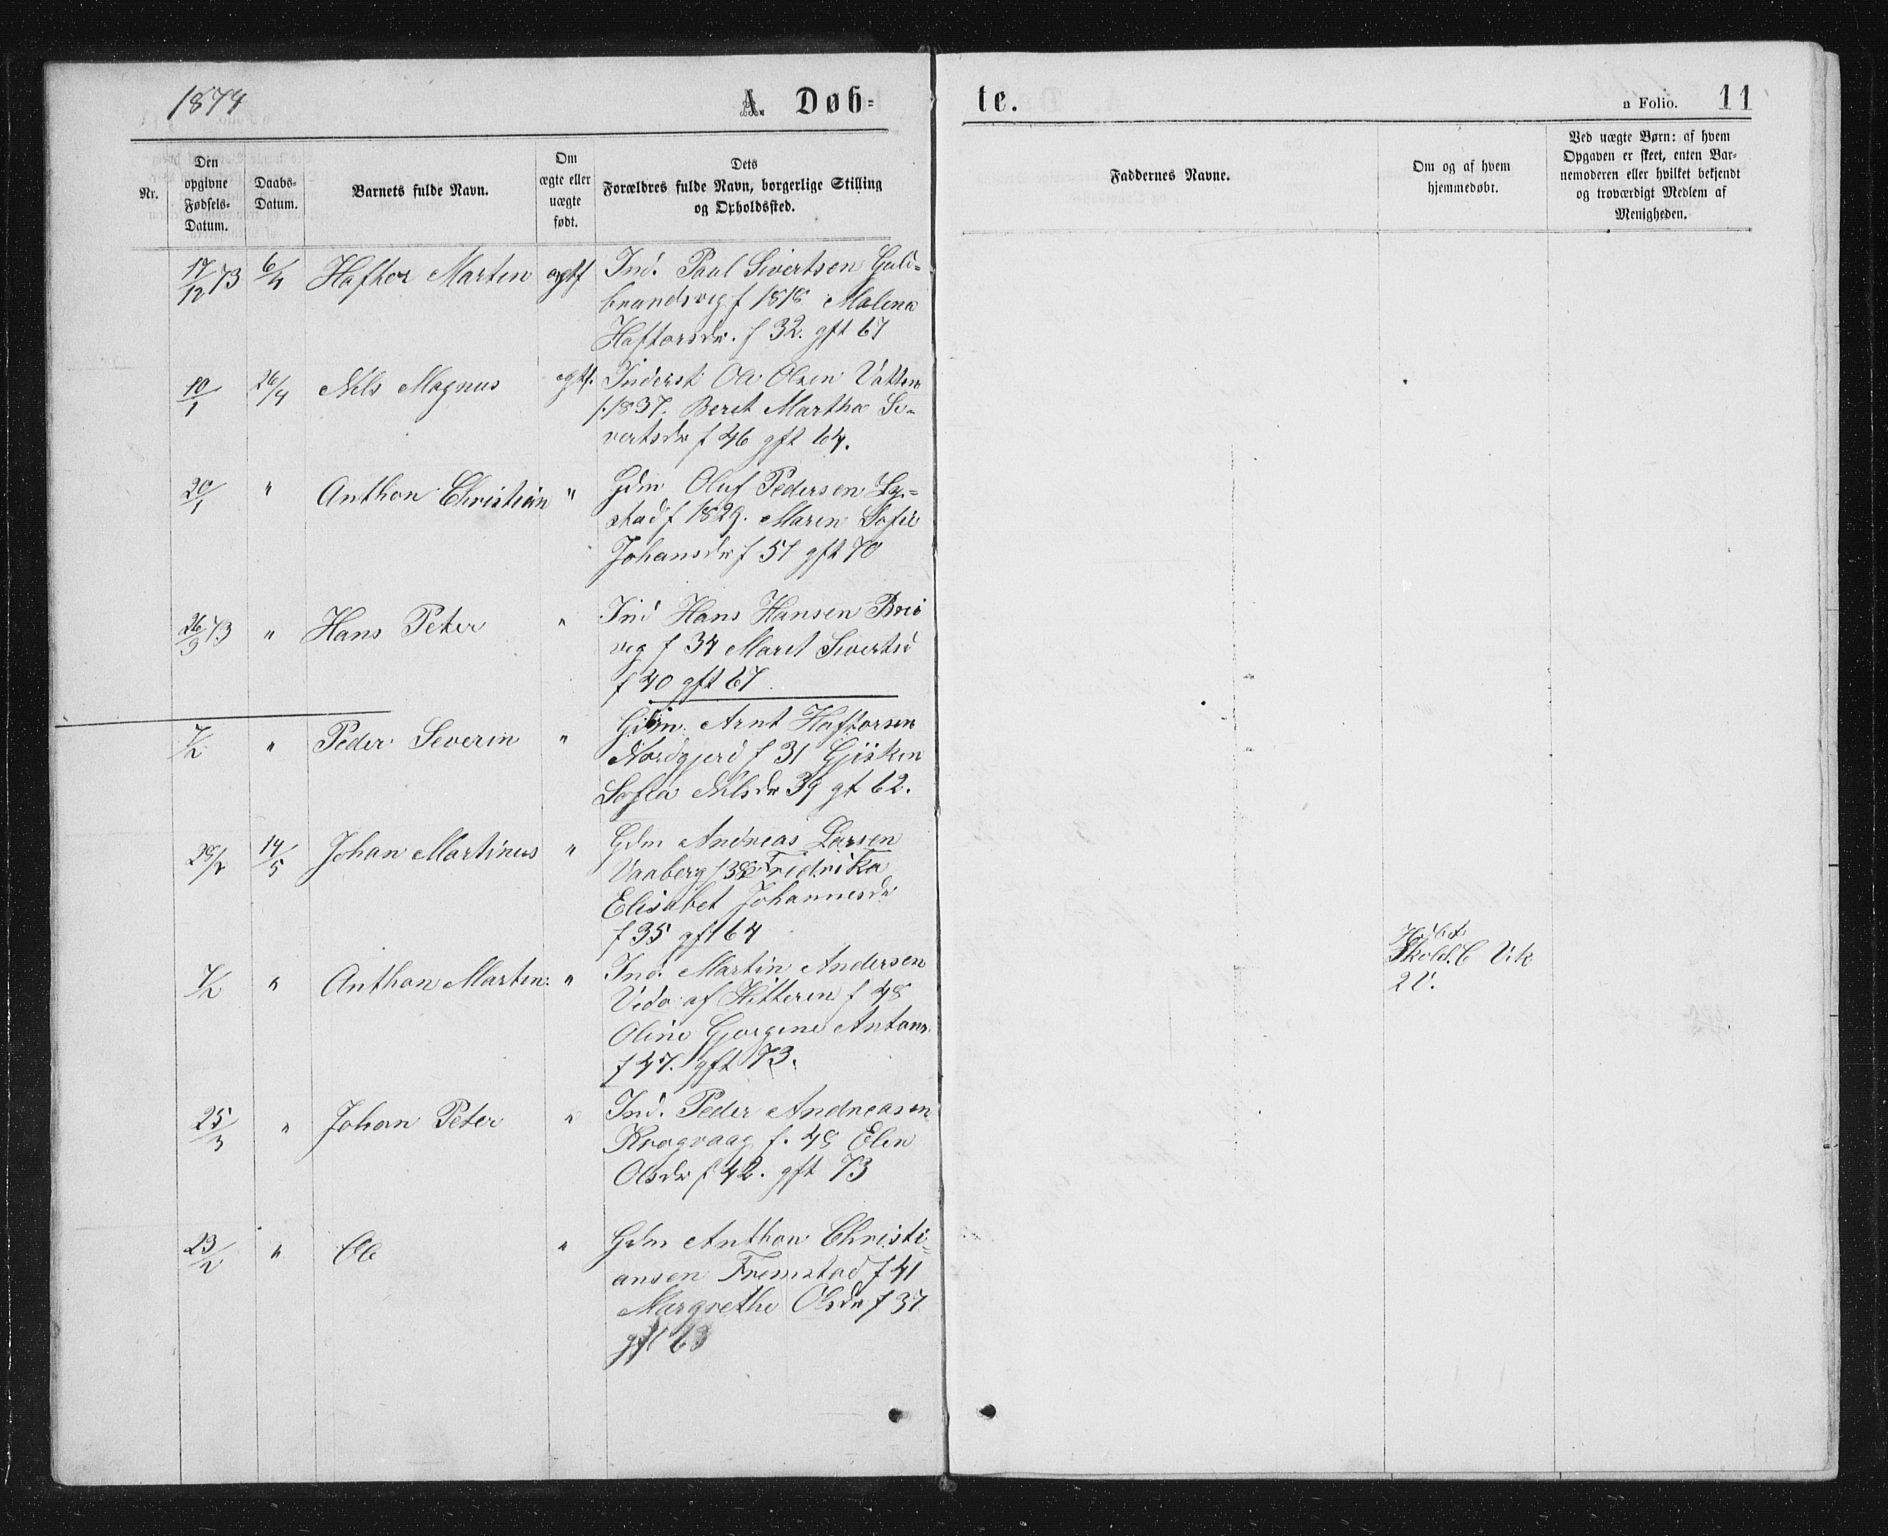 1874
A. Døb=
te.
a Folio. 11
Nr.
Den opgivne Fødsels-Datum.
Daabs-Datum.
Barnets fulde Navn.
Om ægte eller uægte født.
Dets Forældres fulde Navn, borgerlige Stilling og Opholdssted.
Faddernes Navne.
Om og af hvem hjemmedøbt.
Ved uægte Børn: af hvem Opgaven er skeet, enten Barnemoderen eller hvilket bekjendt og troværdigt Medlem af Menigheden.
17/12 73 6/4 Haftor Martin ægtf Ind. Paul Sivertsen Guld=
brandsvig f 1818 Malena
Haftorsdr. f 32. gft 67
10/1 26/4 Nils Magnus egtf. Inderst Ole Olsen Vatten
f. 1837. Beret Martha Si-
vertsdr f 46 gft 64.
20/1 " Anthon Christian " Gdm Oluf Pedersen
stad f 1829. Maren Sofie
Johansdr f 51 gft 70
26/3 73 " Hans Peter " Ind Hans Hansen Brei
vig f 34 Maret Sivertsd
f 40 gft 67
7/2 " Peder Severin " Gdm. Arnt Haftorsen
Nordgjerd f 31 Gjisken
Sofia Nilsdr 39 gt 62.
28/2 14/5 Johan Martinus " Gdm Andreas Larsen
Vaaberg f 38 Fredrika
Elisabet Johannesdr
f 35 gft 64
7/2 " Anthon Martin " Ind. Martin Andersen
Vedø af Hitteren f 48
Oline Gjorgine Antons
f 47. gft 73.
Skoleh. C Vik
2 V.
25/3 " Johan Peter " Ind. Peder Andreasen
Krogvaag f. 48 Elen
Olsdr f 42. gft 73
23/2 " Ole " Gdm Anthon Christi-
ansen Fremstad f 41
Margrethe Olsdr f 37
gft 63